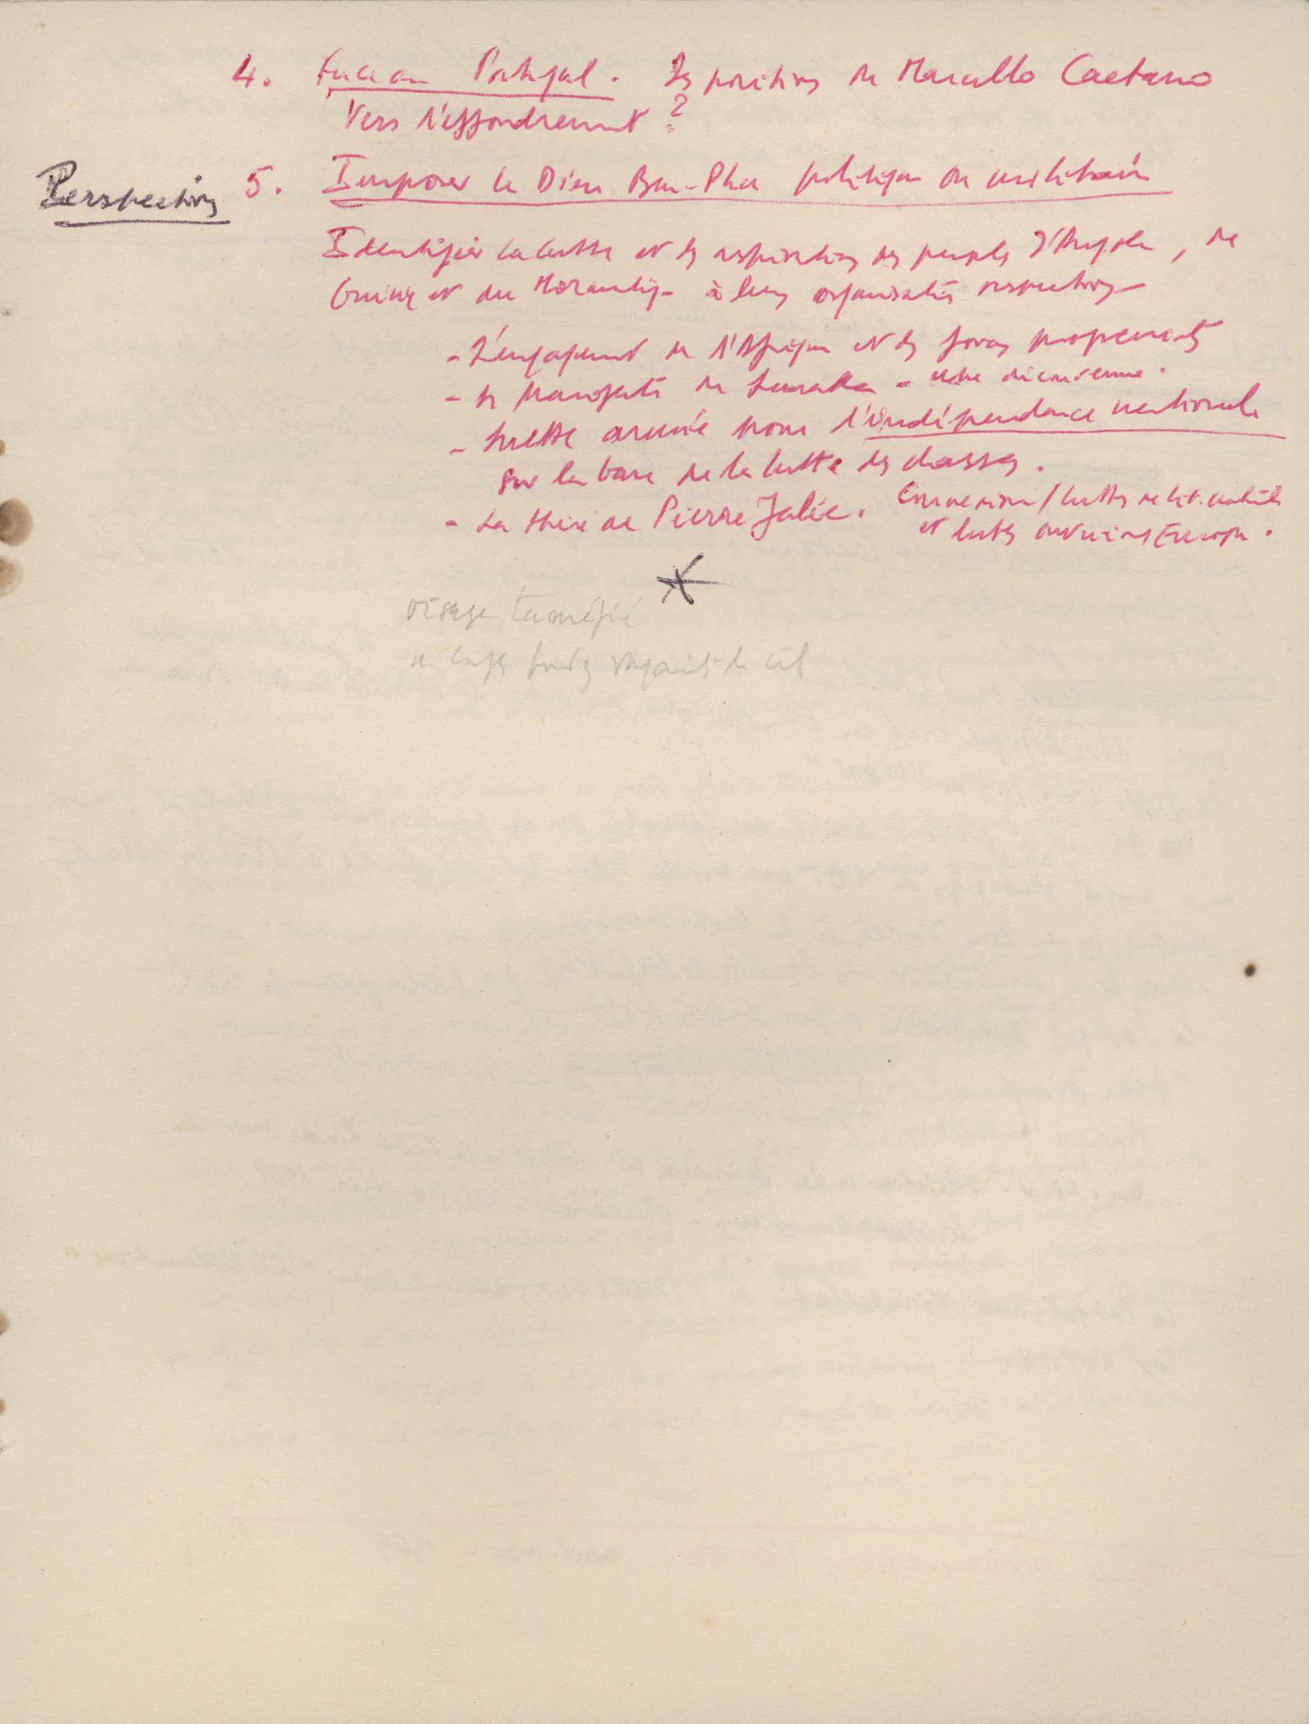 4. Face au Portugal. Les positions de Marcello Caetano
Vers l'effondrement ?
Perspectives 5. Imposer le Dien Bien-Phu politique ou militaire
Identifier la lutte et les aspirations des peuples d'Angola, de
Guinée et du Mozambique à leurs organisations respectives
- L'engagement de l'Afrique et des forces progressistes
- Le Manifeste de Lusaka - une déconvenue.
- Lutte armée pour l'indépendance nationale
sur la base de la lutte des classes.
- La thèse de Pierre Jalée. Connexion / luttes de lib. nationale
et luttes ouvrières Europe.
visage tuméfié